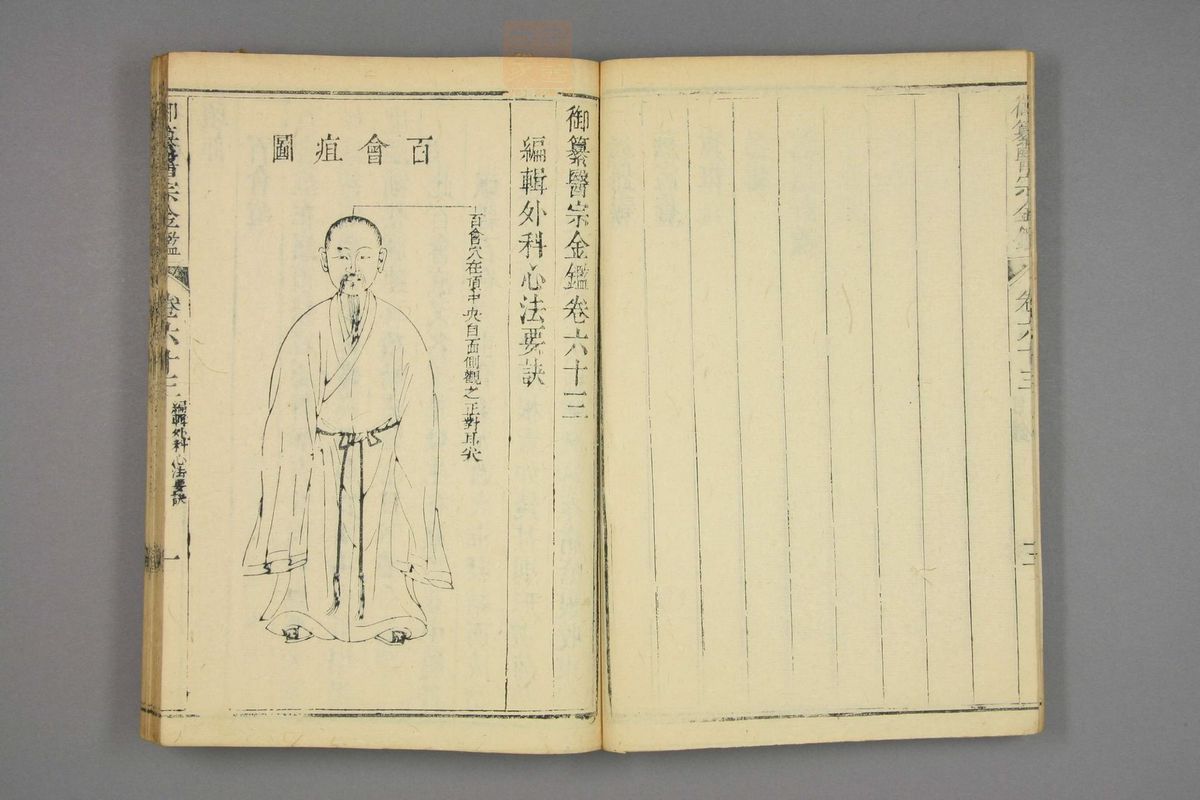 御纂醫宗金鑑
卷六十三
御纂醫宗金鑑卷六十三
編輯外科心法要訣
百會疽圖
百會穴在頂中央自面側觀之正對耳尖
御纂醫宗金鑑
卷六十三
編輯外科心法要訣
一